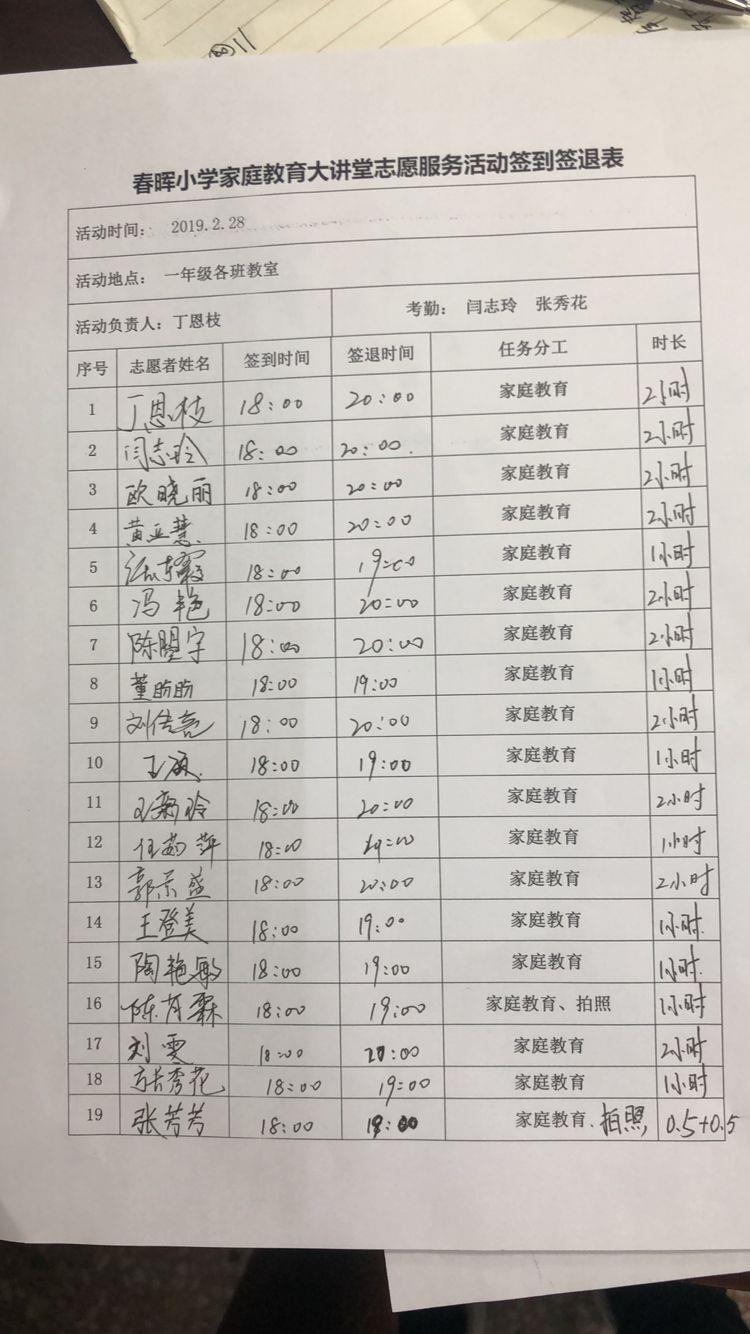 春晖小学家庭教育大讲堂志愿服务活动签到签退表
活动时间: 2019.2.28
活动地点: 一年级各班教室
活动负责人: 丁恩枝 考勤: 闫志玲 张秀花
序号 志愿者姓名 签到时间 签退时间 任务分工 时长
1 丁恩枝 18:00 20:00 家庭教育 2小时
2 闫志玲 18:00 20:00. 家庭教育 2小时
3 欧晓丽 18:00 20:00 家庭教育 2小时
4 黄亚慧 18:00 20:00 家庭教育 2小时
5 18:00 19:00 家庭教育 1小时
6 冯艳 18:00 20:00 家庭教育 2小时
7 陈曌宇 18:00 20:00 家庭教育 2小时
8 董盼盼 18:00 19:00 家庭教育 1小时
9 刘倩亮 18:00 20:00 家庭教育 2小时
10 18:00 19:00 家庭教育 1小时
11 18:00 20:00 家庭教育 2小时
12 任茹萍 18:00 19:00 家庭教育 1小时
13 郭荣盛 18:00 20:00 家庭教育 2小时
14 王登美 18:00 19:00 家庭教育 1小时.
15 陶艳敏 18:00 19:00 家庭教育 1小时.
16 18:00 19:00 家庭教育、拍照 1小时
17 刘雯 18:00 20:00 家庭教育 2小时
18 张秀花 18:00 19:00 家庭教育 1小时
19 张芳芳 18:00 19:00 家庭教育、拍照 0.5+0.5